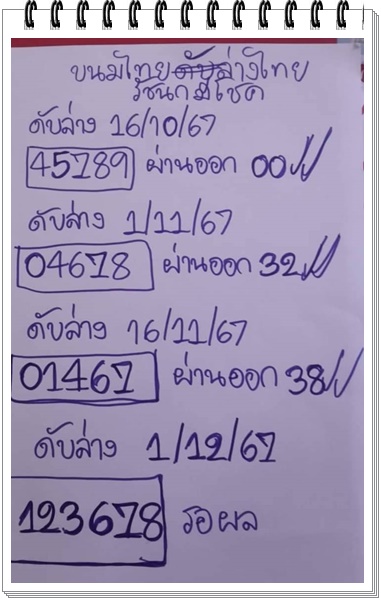 ขนมไทยดับล่างไทย
รัชนกมีโชค
ดับล่าง 16/10/67
45789 ผ่านออก 00
ดับล่าง 1/11/67
04678 ผ่านออก 32
ดับล่าง 16/11/67
01467 ผ่านออก 38
ดับล่าง 1/12/67
123678 รอผล